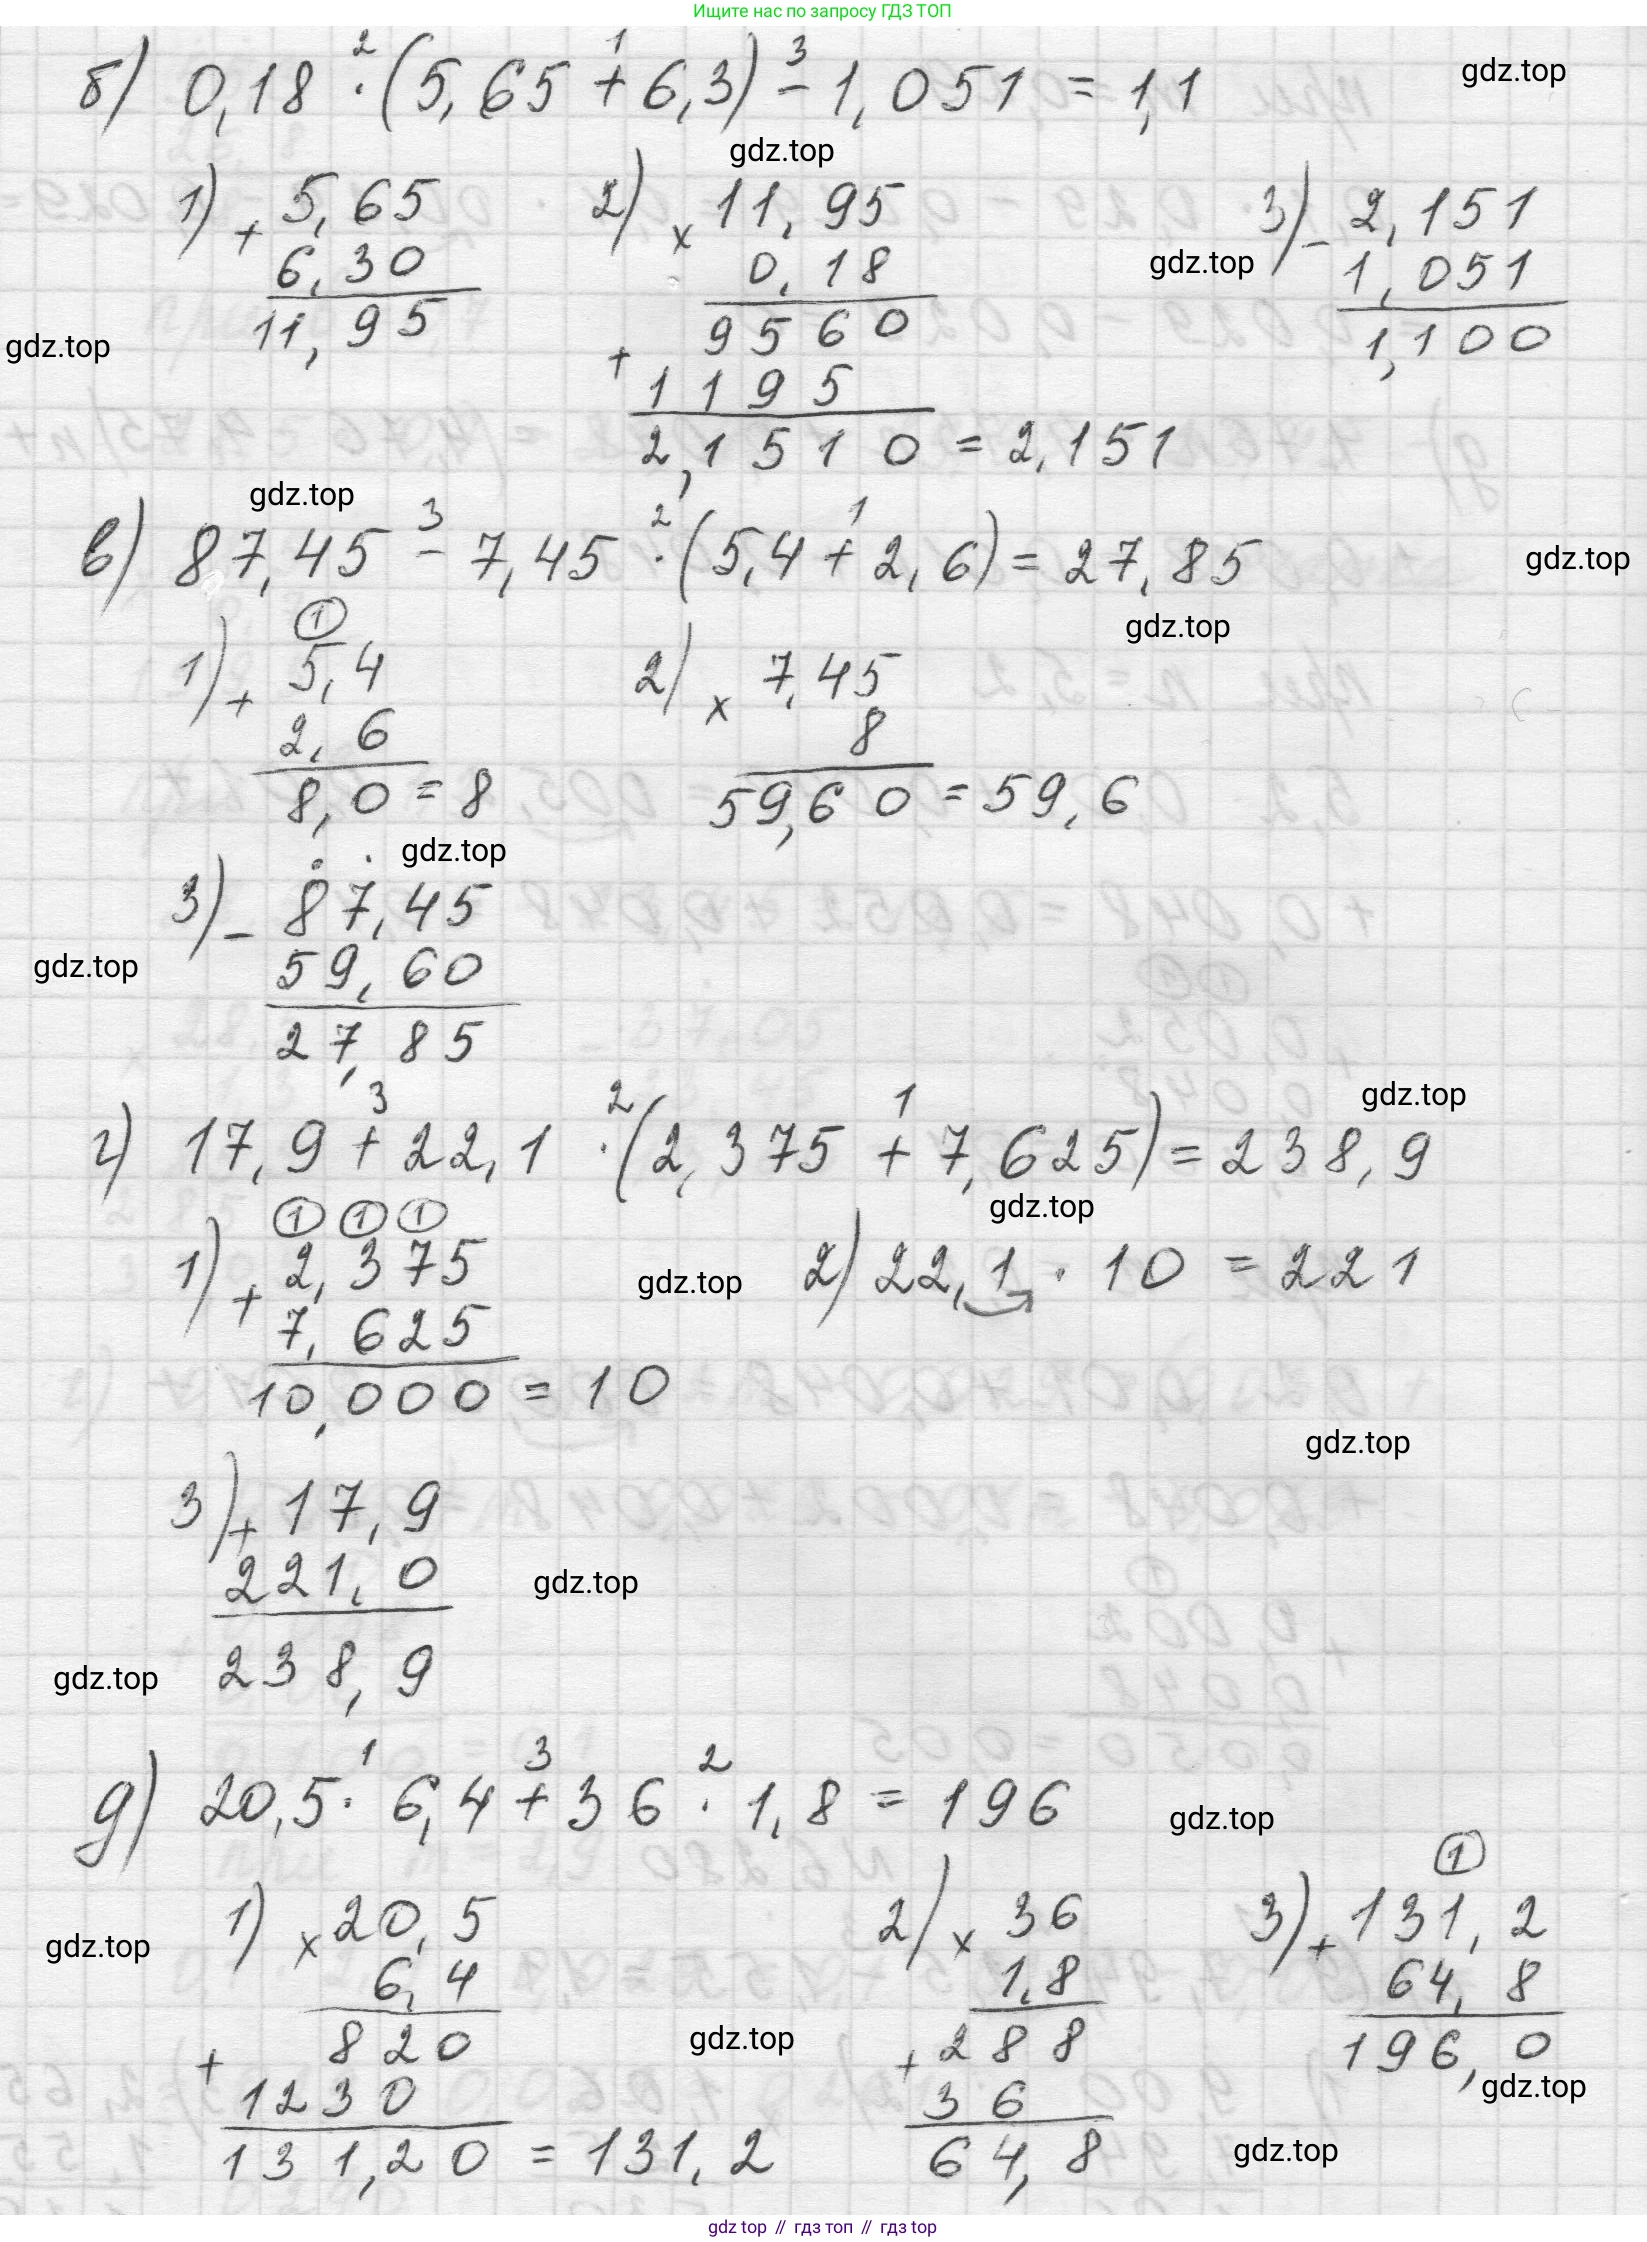 Ищите нас по запросу ГДЗ ТОП
б) 0,18 · (5,65 + 6,3) - 1,051 = 1,1
2 1 3
gdz.top
gdz.top
1) + 5,65
6,30
11,95
2) x 11,95
0,18
9560
+ 1195
2,1510 = 2,151
3) - 2,151
1,051
1,100
gdz.top
gdz.top
gdz.top
в) 87,45 - 7,45 · (5,4 + 2,6) = 27,85
3 2 1
gdz.top
gdz.top
1
1) + 5,4
2,6
8,0 = 8
2) x 7,45
8
59,60 = 59,6
gdz.top
3) - 87,45
59,60
27,85
gdz.top
gdz.top
г) 17,9 + 22,1 · (2,375 + 7,625) = 238,9
3 2 1
gdz.top
1 1 1
1) + 2,375
7,625
10,000 = 10
gdz.top
2) 22,1 · 10 = 221
gdz.top
3) + 17,9
221,0
238,9
gdz.top
gdz.top
д) 20,5 · 6,4 + 36 · 1,8 = 196
1 3 2
gdz.top
1) x 20,5
6,4
820
+ 1230
131,20 = 131,2
gdz.top
2) x 36
1,8
+ 288
36
64,8
gdz.top
1
3) + 131,2
64,8
196,0
gdz.top
gdz.top
gdz top // гдз топ // гдз top